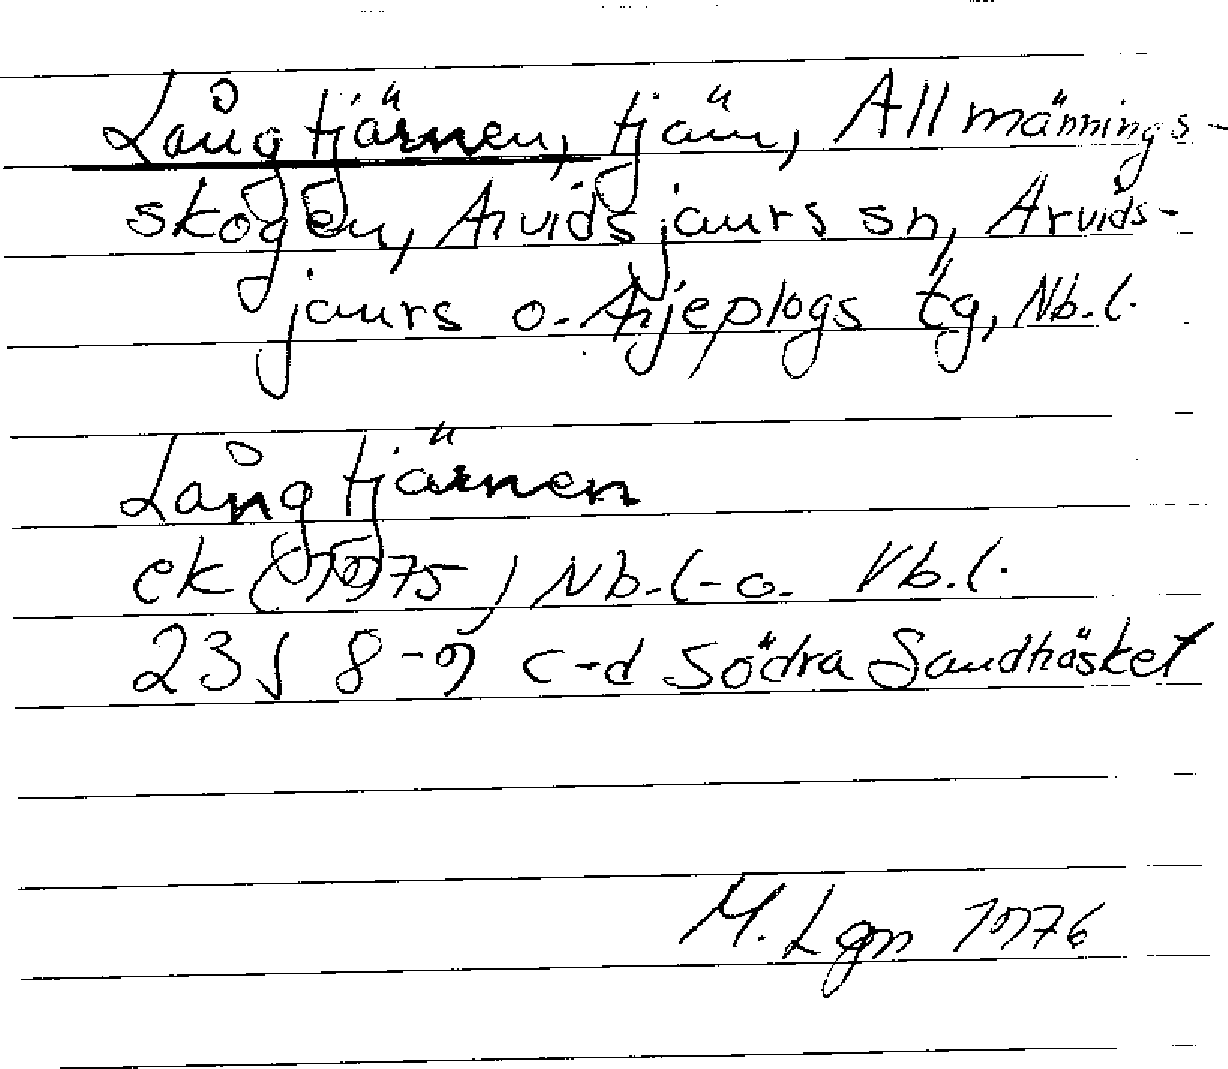 Långtjärnen, tjärn, Allmännings-
skogen, Arvidsjaurs sn, Arvids-
jaurs o. Arjeplogs tg, Nb.l.
Långtjärnen
ek (1975) Nb.l. o. Vb.l.
23J 8-9 c-d Södra Sandträsket
M. Lgn 1976